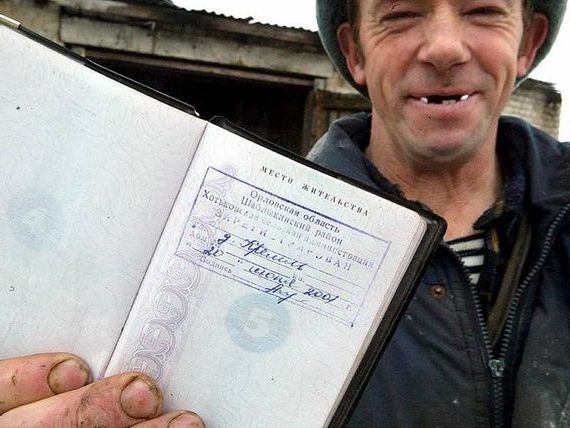 МЕСТО ЖИТЕЛЬСТВА
Орловская область
Шаблыкинский район
Хотьковская сельская администрация
д. Кремль
"20" июня 2001 г.
Подпись
5